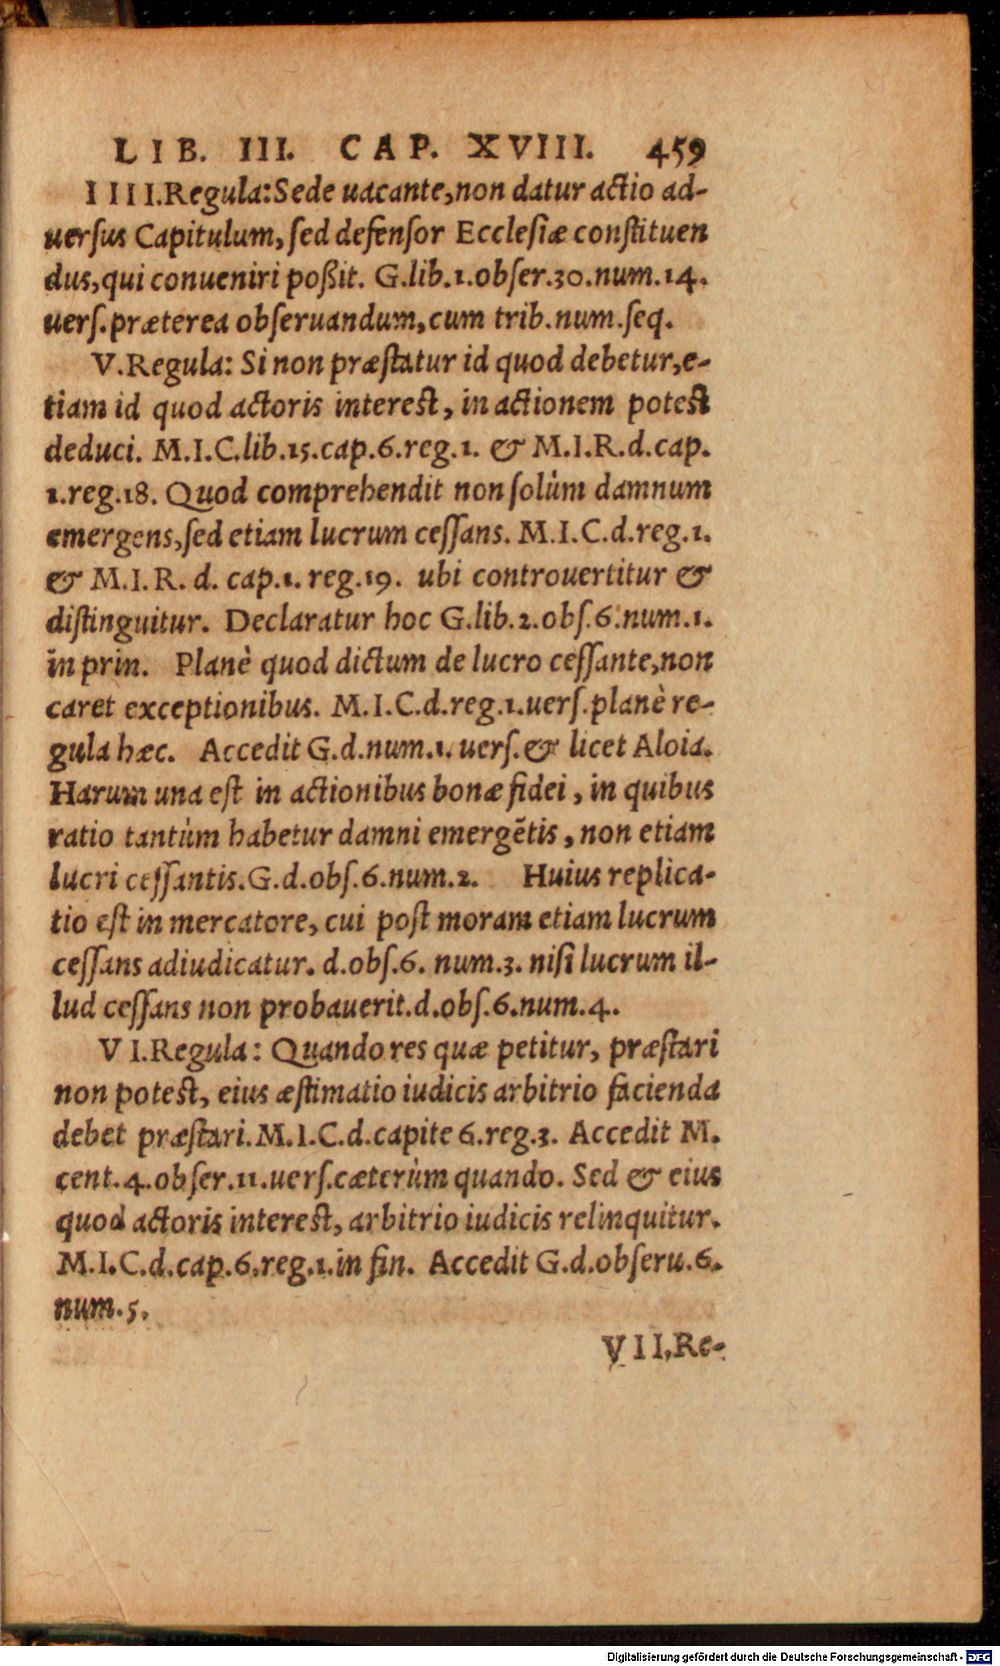 LIB. III. CAP. XVIII. 459
IIII.Regula:Sede uacante,non datur actio ad-
uersus Capitulum, sed defensor Ecclesiæ constituen
dus,qui conueniri poßit. G.lib.1.obser.30.num.14.
uers.præterea obseruandum,cum trib.num.seq.
V.Regula: Si non præstatur id quod debetur,e-
tiam id quod actoris interest, in actionem potest
deduci. M.I.C.lib.15.cap.6.reg.1. & M.I.R.d.cap.
1.reg.18. Quod comprehendit non solùm damnum
emergens,sed etiam lucrum cessans. M.I.C.d.reg.1.
& M.I.R. d. cap.1. reg.19. ubi controuertitur &
distinguitur. Declaratur hoc G.lib.2.obs.6.num.1.
in prin. Planè quod dictum de lucro cessante,non
caret exceptionibus. M.I.C.d.reg.1.uers.planè re-
gula hæc. Accedit G.d.num.1. uers.& licet Aloia.
Harum una est in actionibus bonæ fidei, in quibus
ratio tantùm habetur damni emergẽtis, non etiam
lucri cessantis.G.d.obs.6.num.2. Huius replica-
tio est in mercatore, cui post moram etiam lucrum
cessans adiudicatur. d.obs.6. num.3. nisi lucrum il-
lud cessans non probauerit.d.obs.6.num.4.
VI.Regula: Quando res quæ petitur, præstari
non potest, eius æstimatio iudicis arbitrio facienda
debet præstari.M.I.C.d.capite 6.reg.3. Accedit M.
cent.4.obser.11.uers.cæterùm quando. Sed & eius
quod actoris interest, arbitrio iudicis relinquitur.
M.I.C.d.cap.6.reg.1.in fin. Accedit G.d.obseru.6.
num.5.
VII.Re-
Digitalisierung gefördert durch die Deutsche Forschungsgemeinschaft - DFG